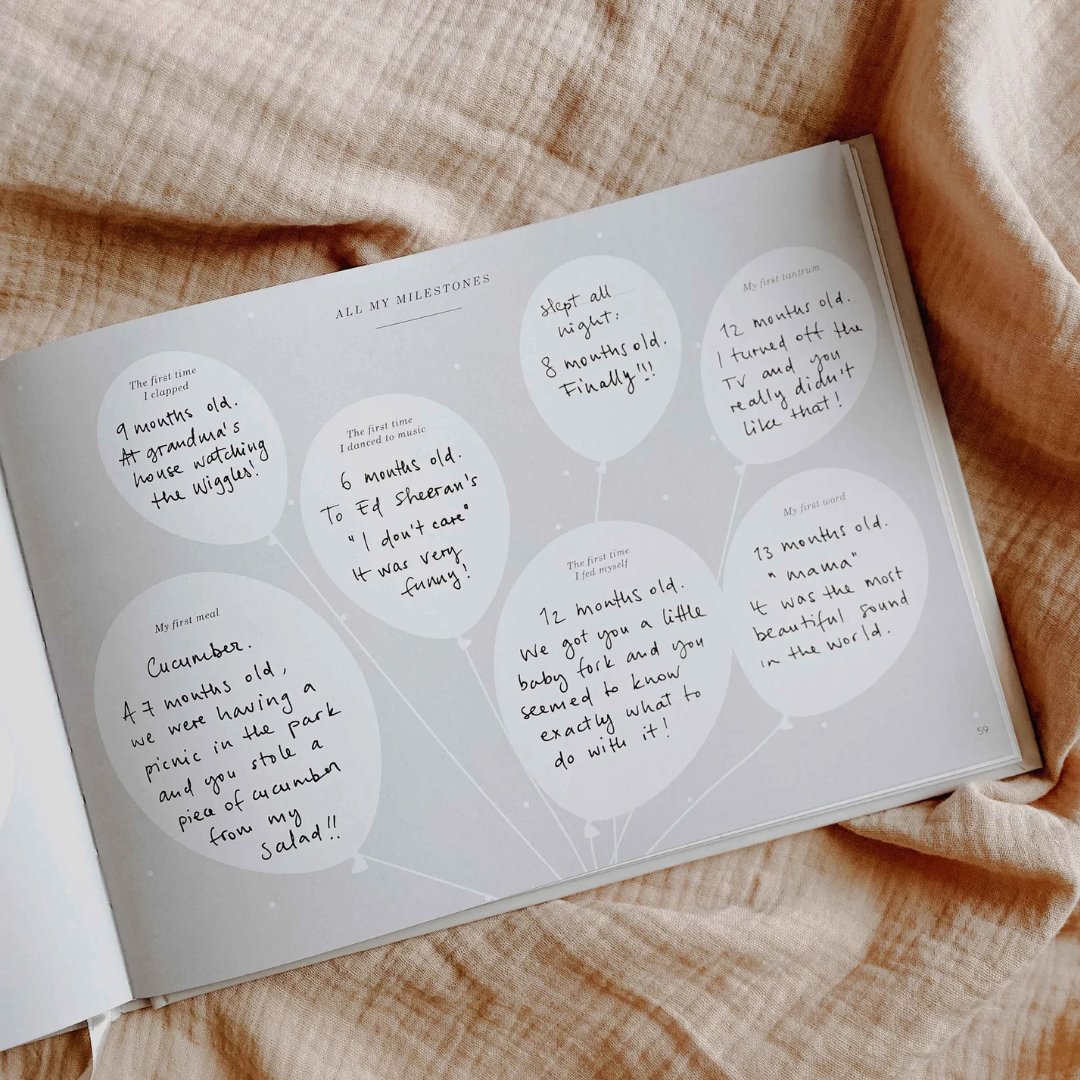 ALL MY MILESTONES
The first time
I clapped
9 months old.
At grandma's
house watching
the Wiggles!
The first time
I danced to music
6 months old.
To Ed Sheeran's
"I don't care"
It was very
funny!
Slept all
night:
8 months old.
Finally!!!
My first tantrum
12 months old.
I turned off the
TV and you
really didn't
like that!
My first meal
Cucumber.
A 7 months old,
we were having a
picnic in the park
and you stole a
piece of cucumber
from my
salad!!
The first time
I fed myself
12 months old.
We got you a little
baby fork and you
seemed to know
exactly what to
do with it!
My first word
13 months old.
"mama"
It was the most
beautiful sound
in the world.
59